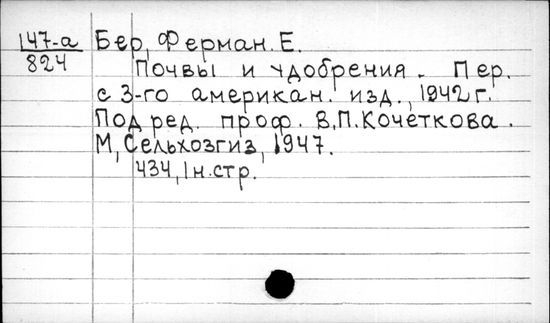 147-а Бер, Ферман. Е.
824
Почвы и удобрения. Пер.
с 3-го американ. изд., 1942 г.
Под ред. проф. В.П.Кочеткова.
М, Сельхозгиз, 1947.
434, 1 н.стр.